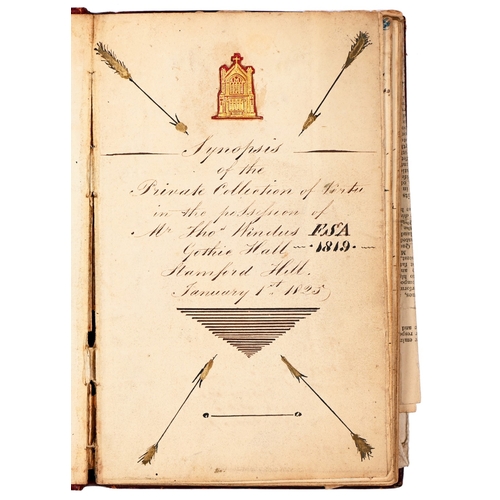 Synopsis
of the
Private Collection of Virtu
in the possession of
Mr. Thos. Windus FSA
Gothic Hall — 1819 —
Stamford Hill.
January 1st 1825